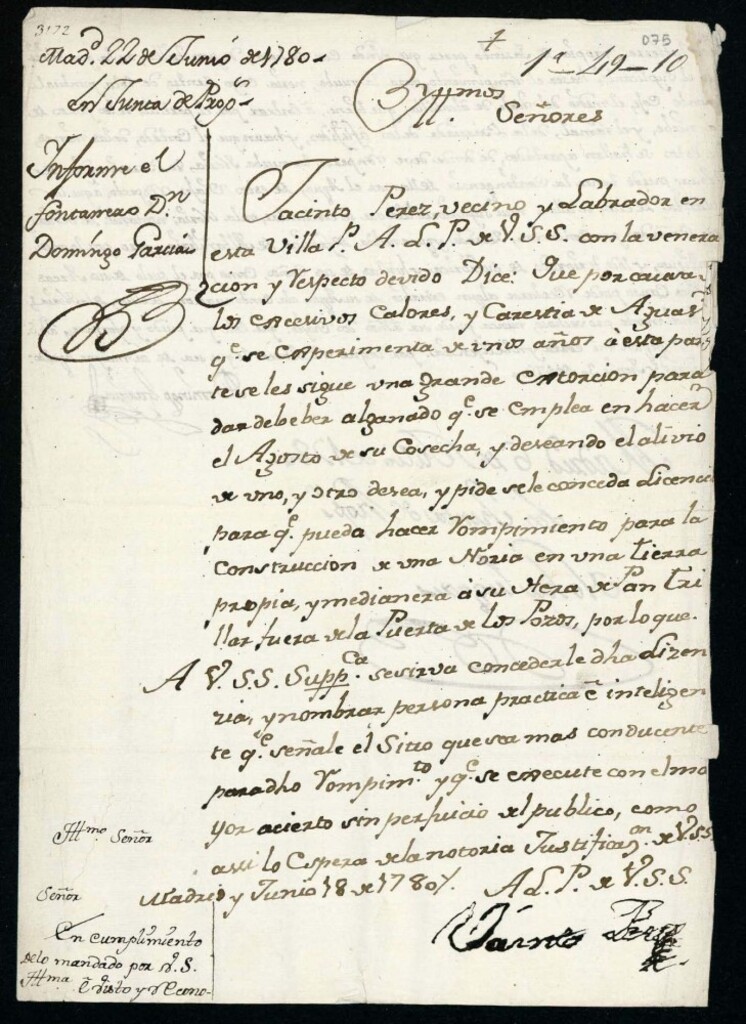 3172
075
Mad.d 22 de Junio de 1780.
1a-49-10
En Junta de Prop.s
Yllmos
Señores
Informe el
fontanero Dn.
Domingo Garcia
Jacinto Perez, vecino y Labrador en
esta Villa P. A. L. P. de V. S. S. con la venera
cion y respecto devido Dice: Que por causa de
los excesivos Calores, y Carestia de Aguas
q.e se experimenta de unos años à esta par
te se les sigue una grande extorcion para
dar de beber al ganado q.e se emplea en hacer
el Agosto de su Cosecha, y deseando el alivio
de uno, y otro desea, y pide se le conceda Licencia
para q.e pueda hacer rompimiento para la
Construccion de una Noria en una tierra
propia, y medianera à su Hera de Pan tri
llar fuera de la Puerta de los Pozos, por lo que.
A V. S. S. Supp.ca se sirva concederle dha Lizen
zia, y nombrar persona practica è inteligen
te q.e señale el Sitio que sea mas conducente
para dho rompim.to y q.e se execute con el ma
yor acierto sin perjuicio del publico, como
assi lo Espera de la notoria Justificaz.on de V.S.S.
Madrid y Junio 18 de 1780.
A L. P. de V. S. S.
Jacinto Perez
Yllmo Señor
Señor
En cumplimiento
de lo mandado por V. S.
Yllma è visto y recono-